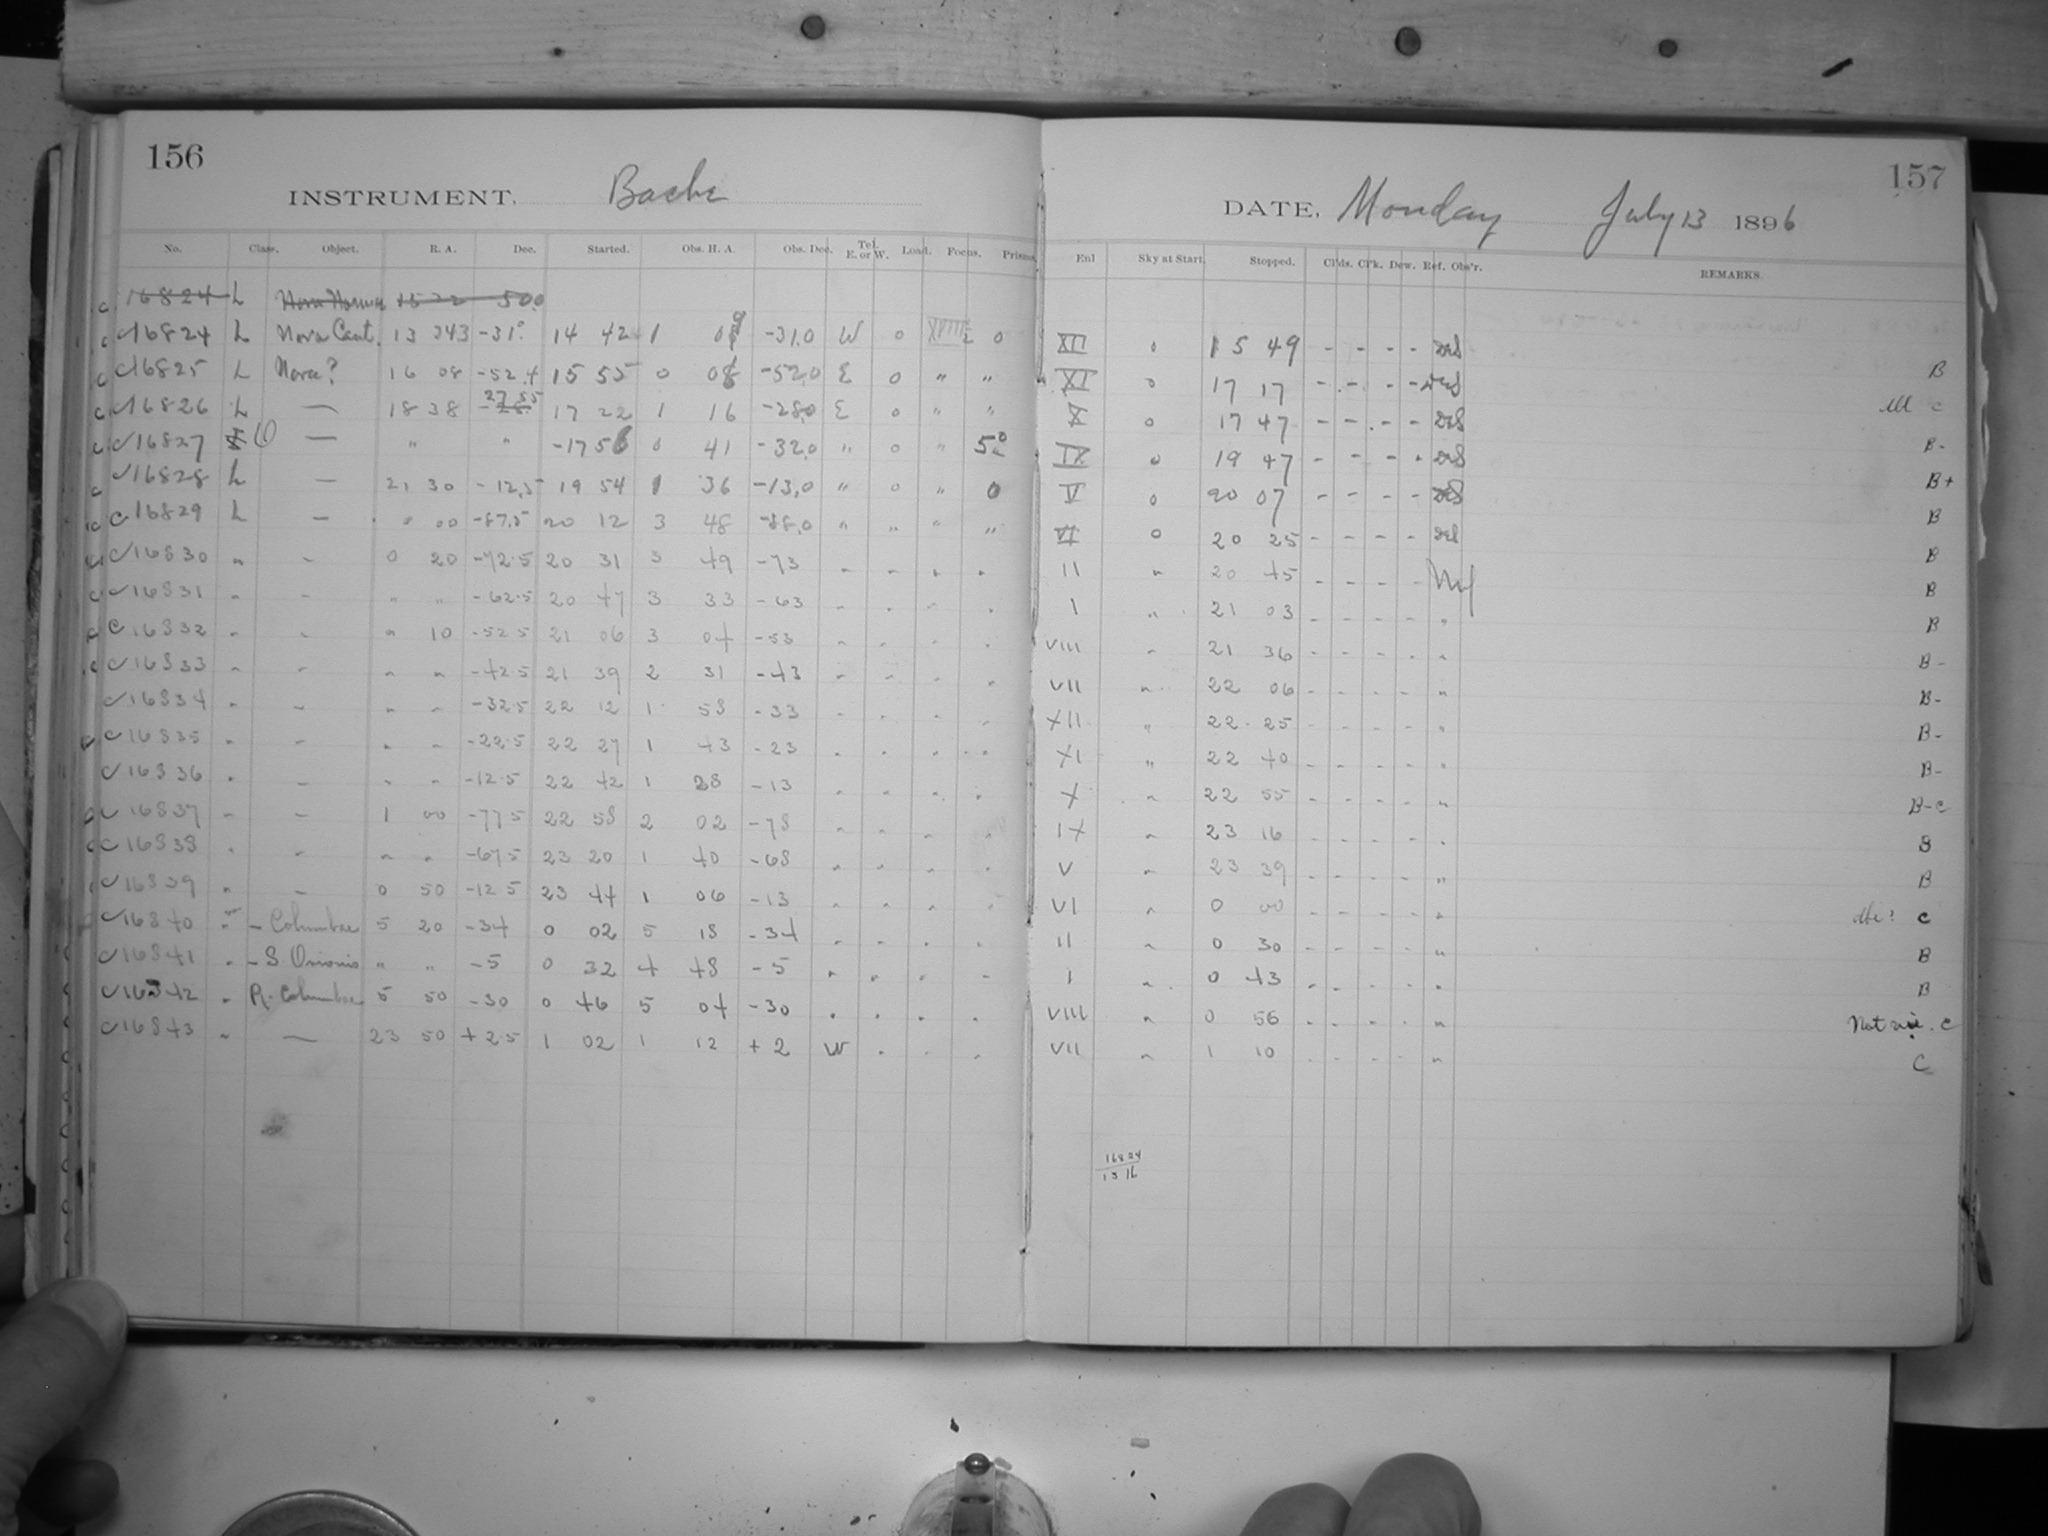 156
INSTRUMENT. Bache
No. Class. Object. R. A. Dec. Started. Obs. H. A. Obs. Dec. Tel. E. or W. Load. Focus. Prisms.
c 16824 L Nova Norma 15 22 50.0
c 16824 L Nova Cent. 13 343 -31° 14 42 1 -31.0 W 0 0
c 16825 L Nova? 16 08 -52.4 15 55 0 08 -52.0 E 0 " "
c 16826 L — 18 38 27 55 17 22 1 16 -28.0 E 0 " "
c 16827 — " " -17 56 0 41 -32.0 " 0 " 5°
c 16828 L — 21 30 -12.5 19 54 1 36 -13.0 " 0 " 0
c 16829 L - " 00 -87.5 20 12 3 48 -88.0 " " " "
c 16830 " - 0 20 -72.5 20 31 3 49 -73 " " " "
c 16831 " - " " -62.5 20 47 3 33 -63 " " " "
c 16832 " - " 10 -52.5 21 06 3 04 -53 " " " "
c 16833 " - " " -42.5 21 39 2 31 -43 " " " "
16834 " - " " -32.5 22 12 1 58 -33 " " " "
c 16835 " - " " -22.5 22 27 1 43 -23 " " " "
16836 " - " " -12.5 22 42 1 28 -13 " " " "
c 16837 " - 1 00 -77.5 22 58 2 02 -78 " " " "
c 16838 " - " " -67.5 23 20 1 40 -68 " " " "
16839 " - 0 50 -12.5 23 44 1 06 -13 " " " "
16840 " - Columbae 5 20 -34 0 02 5 18 -34 " " " "
16841 " - S. Orionis " " -5 0 32 4 48 -5 " " " "
16842 " R. Columbae 5 50 -30 0 46 5 04 -30 " " " "
16843 " — 23 50 +2.5 1 02 1 12 +2 W " " "
157
DATE, Monday July 13 1896
Enl Sky at Start. Stopped. Clds. Cl'k. Dew. Ref. Obs'r. REMARKS.
XII 0 15 49 - - - - B
XI 0 17 17 - - - - c
X 0 17 47 - - - - B-
IX 0 19 47 - - - - B+
V 0 20 07 - - - - B
VI 0 20 25 - - - - B
II " 20 45 - - - - B
I " 21 03 - - - - " B
VIII " 21 36 - - - - " B-
VII " 22 06 - - - - " B-
XII " 22 25 - - - - " B-
XI " 22 40 - - - - " B-
X " 22 55 - - - - " B-C
IX " 23 16 - - - - " B
V " 23 39 - - - - " B
VI " 0 00 - - - - " c
II " 0 30 - - - - " B
I " 0 43 - - - - " B
VIII " 0 56 - - - - " Not c
VII " 1 10 - - - - " C
16824
1316